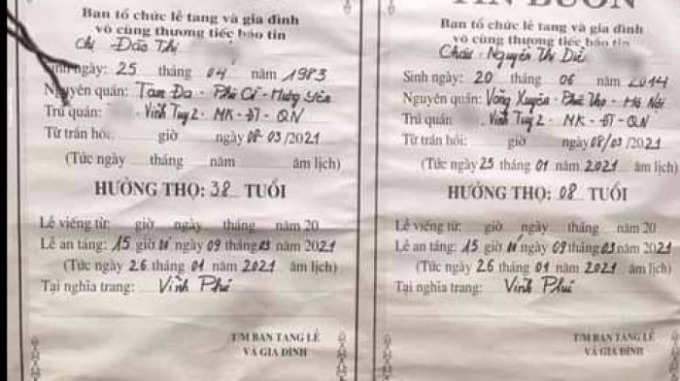 Ban tổ chức lễ tang và gia đình
vô cùng thương tiếc báo tin
Chị Đào Thị
Sinh ngày: 25 tháng 04 năm 1983
Nguyên quán: Tam Đa - Phù Cừ - Hưng Yên
Trú quán: Vĩnh Tuy 2 - MK - ĐT - QN
Từ trần hồi: giờ ngày 08-03/2021
(Tức ngày tháng năm âm lịch)
HƯỞNG THỌ: 38 TUỔI
Lễ viếng từ: giờ ngày tháng năm 20
Lễ an táng: 15 giờ ngày 09 tháng 03 năm 2021
(Tức ngày 26 tháng 01 năm 2021 âm lịch)
Tại nghĩa trang: Vĩnh Phú
T/M BAN TANG LỄ
VÀ GIA ĐÌNH
TIN BUỒN
Ban tổ chức lễ tang và gia đình
vô cùng thương tiếc báo tin
Cháu - Nguyễn Thị
Sinh ngày: 20 tháng 06 năm 2014
Nguyên quán: Võng Xuyên - Phú Thọ - Hà Nội
Trú quán Vĩnh Tuy 2 - MK - ĐT - QN
Từ trần hồi: giờ ngày 08/03/2021
(Tức ngày 25 tháng 01 năm 2021 âm lịch)
HƯỞNG THỌ: 08 TUỔI
Lễ viếng từ: giờ ngày tháng năm 20
Lễ an táng: 15 giờ ngày 09 tháng 03 năm 2021
(Tức ngày 26 tháng 01 năm 2021 âm lịch)
Tại nghĩa trang: Vĩnh Phú
T/M BAN TANG LỄ
VÀ GIA ĐÌNH